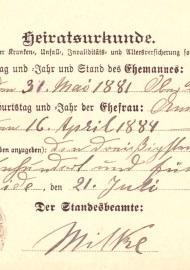 Heiratsurkunde.
Kranken-, Unfall-, Invaliditäts- und Altersversicherung
tag und -Jahr und Stand des Ehemannes:
31. Mai 1881
burtstag und -Jahr der Ehefrau:
16. April 1884
anzugeben): den dreißigsten
hundert und fün
, den 21. Juli
Der Standesbeamte:
Milke